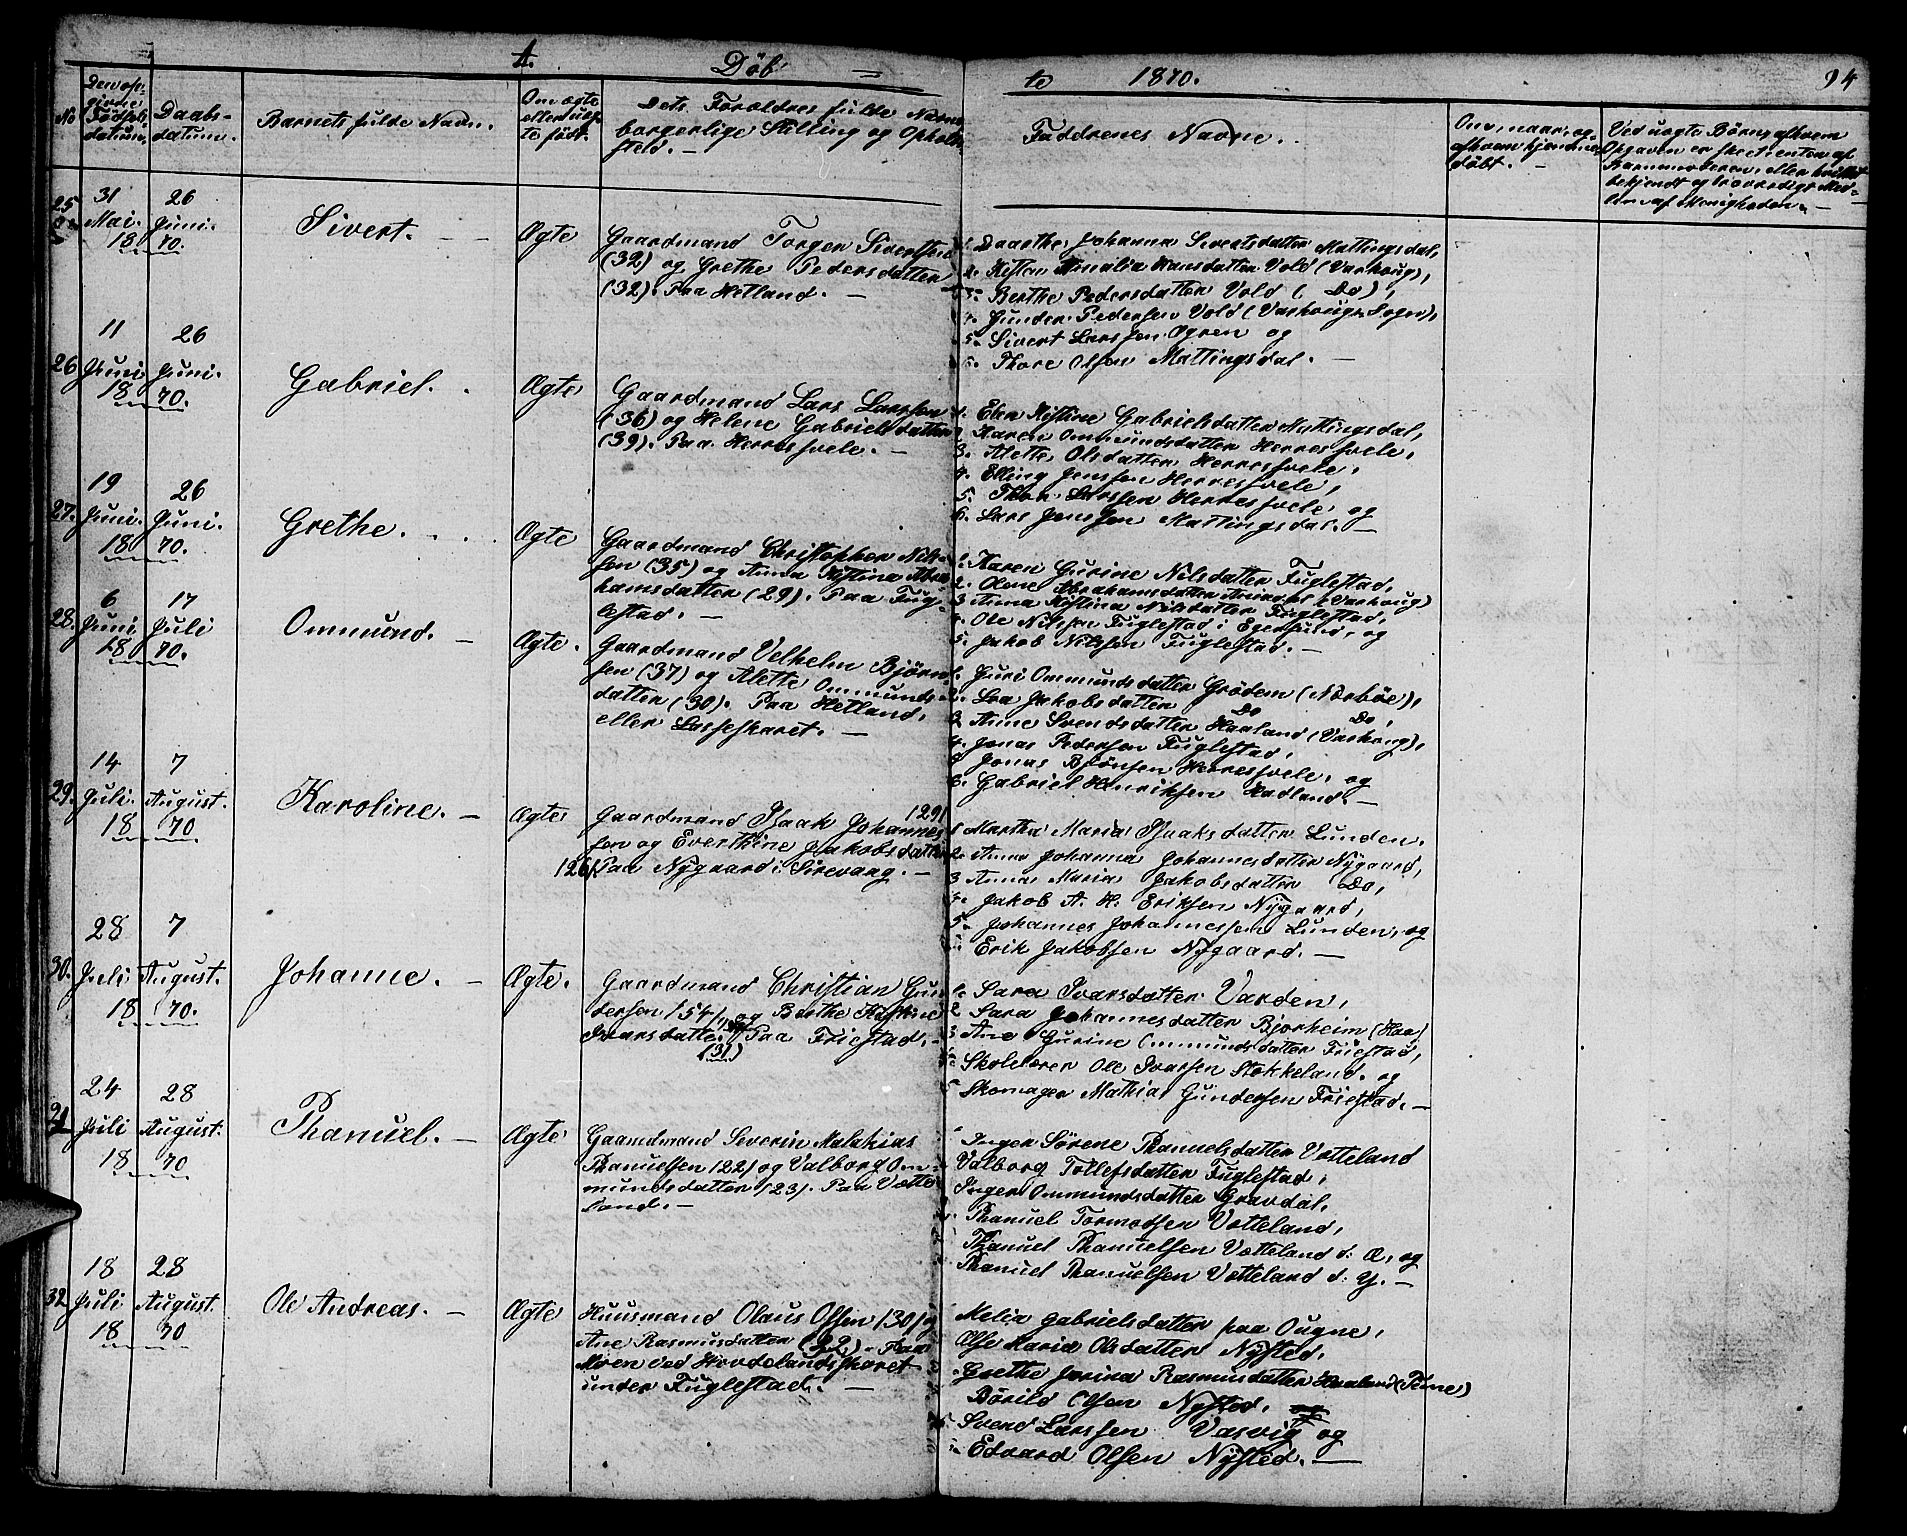 A.
Döb-
te 1870.
94
No
Den opgivne Fødselsdatum.
Daabsdatum.
Barnets fulde Navn.
Om ægte eller uægte født.
Dets Forældres fulde Navne
borgerlige Stilling og Opholdsted. —
Faddrenes Navne.
Om, naar, og
døbt. -
Ved uægte Børns
25
31 Mai. 1870.
26 Juni.
Sivert. —
Ægte
Gaardmand Torger Sivertsen
(32) og Grethe Pedersdatter
(32). Paa Hetland. —
1. Daarthe Johanna Sivertsdatter Mattingsdal,
2. Kisten Amalia Hansdatter Vold (Varhoug),
3. Berthe Pedersdatter Vold ( Do),
4. Gunder Pedersen Vold (Varhoug Sogn),
5. Sivert Larssen Ogren og
6. Thore Olsen Mattingsdal. —
26
11 Juni 1870.
26 Juni.
Gabriel.
Ægte
Gaardmand Lars Larssen
(36) og Helene Gabrielsdatter
(39). Paa Herresfvele. —
1. Elen Kistine Gabrielsdatter Mattingsdal,
2. Karen Ommundsdatter Herresfvele,
3. Alette Olsdatter Herresfvele,
4. Elling Jenssen Herresfvele,
5. Thor Larssen Herresfvele og
6. Lars Jenssen Mattingsdal. —
27.
19 Juni. 1870.
26 Juni.
Grethe.
Ægte
Gaardmand Christopher Nils-
sen (35) og Anna Kistina Abra-
hamsdatter (29). Paa Fug-
lestad. —
1. Karen Gurine Nilsdatter Fuglestad,
2. Olene Abrahamsdatter (Varhoug)
3 Anna Kistina Nilsdatter Fuglestad,
4. Ole Nilssen Fuglestad i Egersund, og
5. Jakob Nilssen Fuglestad. —
28.
6 Juni 1870.
17 Juli
Ommund. —
Ægte.
Gaardmand Velhelm Bjørn-
sen (37) og Alette Ommunds-
datter (30). Paa Hetland,
eller Lasseskaret. —
1. Guri Ommundsdatter Grödem (Nærbøe),
2. Lea Jakobsdatter Do Do,
3 Anne Svendsdatter Haaland (Varhoug),
4. Jonas Pedersen Fuglestad,
5 Jonas Bjönsen Herresfvele, og
6. Gabriel Henriksen Hadland. —
29.
14 Juli. 1870
7 August.
Karoline. —
Ægte
Gaardmand Isaak Johannes- (29)
sen og Everthine Jakobsdatter
(26) Paa Nygaard i Sirevaag. —
1 Martha Maria Isaaksdatter Lunden.
2. Anna Johanna Johannesdatter Nygaard,
3 Anna Maria Jakobsdatter Do,
4. Jakob A. H. Eriksen Nygaard,
5. Johannes Johannessen Lunden, og
6. Erik Jakobsen Nygaard. —
30.
28 Juli 1870.
7 August.
Johanne. —
Ægte.
Gaardmand Christian Gun-
dersen (54) og Berthe Kistine
Ivarsdatter Paa Friestad. -
(31)
1. Sara Ivarsdatter Varden,
2 Sara Johannesdatter Bjorheim (Haa)
3 Ane Gurine Ommundsdatter Friestad,
4. Skolelærer Ole Ivarssen Stokkeland. og
5 Skomager Mathias Gundersen Friestad. —
31
24 Juli 1870
28 August.
Thanuel. —
Ægte
Gaardmand Severin Malakias
Thanuelsen (22) og Valborg Om-
mundsdatter (23). Paa Vætte-
land. —
Inger Sørene Thanuelsdatter Vatteland
Valborg Tollefsdatter Fuglestad,
Inger Ommundsdatter Gravdal,
Thanuel Tormodsen Vatteland,
Thanuel Thanuelsen Vætteland d: Æ, og
Thanuel Thanuelsen Vatteland d: Y. —
32
18 Juli 1870
28 August.
Ole Andreas. —
Ægte
Huusmand Olaus Olsen (30) og
Ane Rasmusdatter (22). Paa
Moen ved Hovdelandsskaret
under Fuglestad. —
Melia Gabrielsdatter paa Ougne,
Else Maria Olsdatter Nysted,
Grethe Jorina Rasmusdatter Haaland (Time)
Börild Olsen Nysted.
5 Svend Larssen Vasvig og
Edvard Olsen Nysted. —